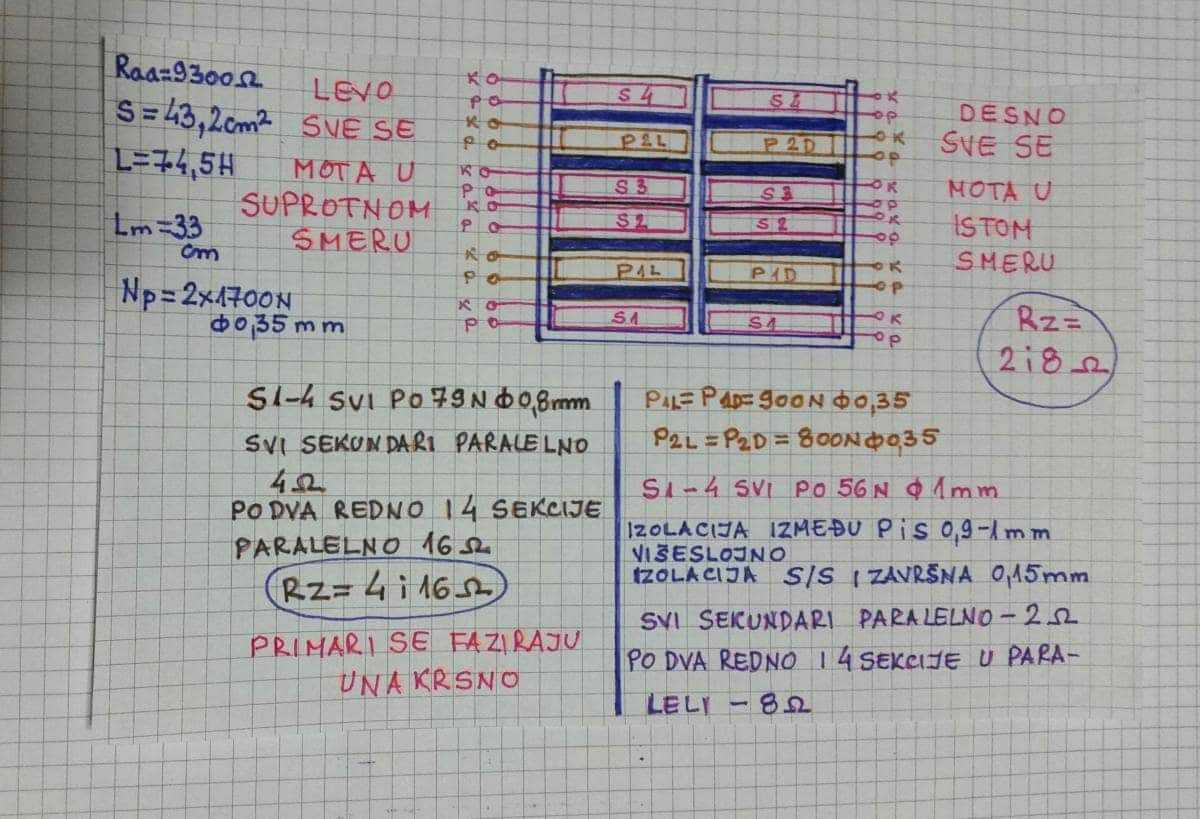 Raa=9300Ω
S=43,2cm²
L=74,5H
Lm=33
cm
Np=2x1700N
Φ0,35mm
LEVO
SVE SE
MOTA U
SUPROTNOM
SMERU
K S4 S4 K
P P
K P2L P2D K
P P
K S3 S3 K
P P
K S2 S2 K
P P
K P1L P1D K
P P
K S1 S1 K
P P
DESNO
SVE SE
MOTA U
ISTOM
SMERU
Rz=
2i8Ω
S1-4 SVI PO 79N Φ0,8mm
SVI SEKUNDARI PARALELNO
4Ω
PO DVA REDNO I 4 SEKCIJE
PARALELNO 16Ω
Rz=4i16Ω
PRIMARI SE FAZIRAJU
UNAKRSNO
P1L=P1D=900NΦ0,35
P2L=P2D=800NΦ0,35
S1-4 SVI PO 56N Φ1mm
IZOLACIJA IZMEĐU P i S 0,9-1mm
VIŠESLOJNO
IZOLACIJA S/S I ZAVRŠNA 0,15mm
SVI SEKUNDARI PARALELNO-2Ω
PO DVA REDNO I 4 SEKCIJE U PARA-
LELI-8Ω